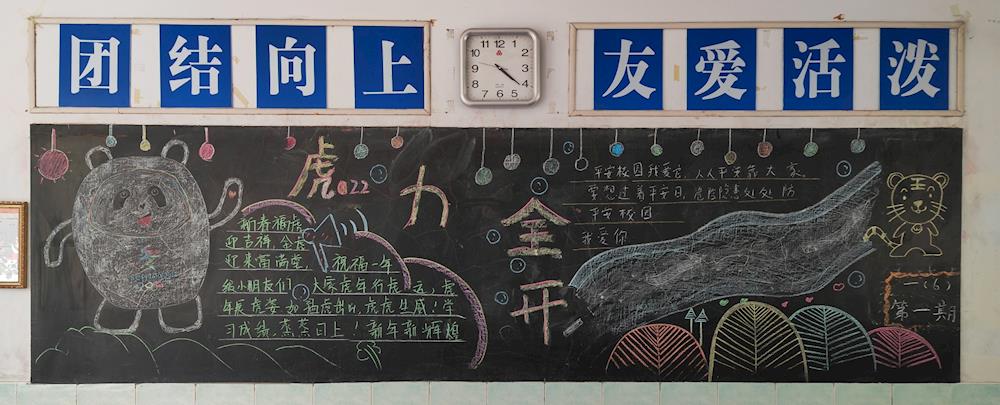 团结向上
友爱活泼
虎022
力
全
开
新春福虎
迎吉祥,金虎
迎来富满堂,祝福一年
给小朋友们 大家虎年行虎
年展虎姿如猛虎出山,虎虎生威!学
习成绩蒸蒸日上!新年新辉煌
平安校园我爱它,人人平安靠大家,
要想过着平安日,危险隐患处处防
平安校园
我爱你
一(6)
第一期
12
11
1
10
2
9
3
8
4
7
6
5